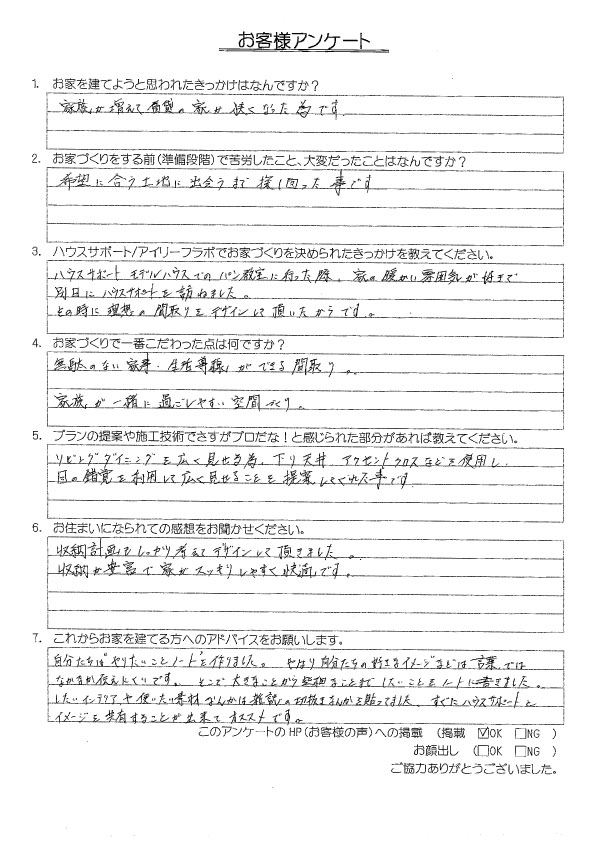 お客様アンケート
1. お家を建てようと思われたきっかけはなんですか？
家族が増えて賃貸の家が狭くなった為です
2. お家づくりをする前（準備段階）で苦労したこと、大変だったことはなんですか？
希望に合う土地に出会うまで探し回った事です
3. ハウスサポート/アイリーフラボでお家づくりを決められたきっかけを教えてください。
ハウスサポート モデルハウスでのパン教室に行った際、家の暖かい雰囲気が好きで
別日にハウスサポートを訪ねました。
その時に理想の間取りをデザインして頂いたからです。
4. お家づくりで一番こだわった点は何ですか？
無駄のない家事・生活導線ができる間取り。
家族が一緒に過ごしやすい空間づくり。
5. プランの提案や施工技術でさすがプロだな！と感じられた部分があれば教えてください。
リビングダイニングを広く見せる為、下り天井、アクセントクロスなどを使用し、
目の錯覚を利用して広く見せることを提案してくれた事です
6. お住まいになられての感想をお聞かせください。
収納計画もしっかり考えてデザインして頂きました。
収納が豊富で家がスッキリしやすく快適です。
7. これからお家を建てる方へのアドバイスをお願いします。
自分たちは"やりたいことノート"を作りました。やはり自分たちの好きなイメージなどは言葉では
なかなか伝えにくいです。そこで大きなことから細かいことまでしたいことをノートに書きました。
したいインテリアや使いたい素材なんかは雑誌の切抜きなんかを貼ってました すぐにハウスサポートと
イメージを共有することが出来てオススメです。
このアンケートの HP（お客様の声）への掲載 （掲載 ☑OK □NG ）
お顔出し （□OK □NG ）
ご協力ありがとうございました。